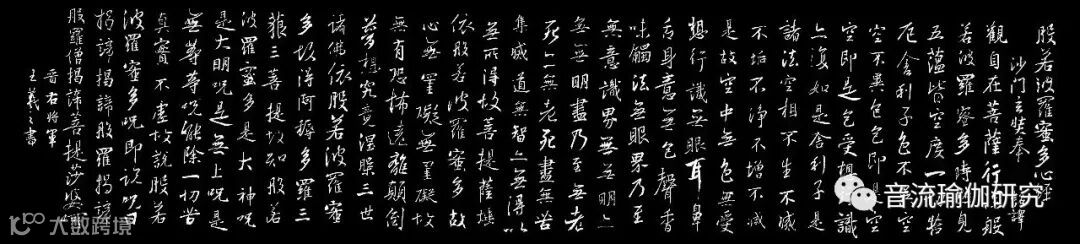 般若波羅蜜多心經
沙門玄奘奉 詔譯
觀自在菩薩行深般
若波羅蜜多時照見
五蘊皆空度一切苦
厄舍利子色不異空
空不異色色即是空
空即是色受想行識
亦復如是舍利子是
諸法空相不生不滅
不垢不淨不增不減
是故空中無色無受
想行識無眼耳鼻
舌身意無色聲香
味觸法無眼界乃至
無意識界無無明亦
無無明盡乃至無老
死亦無老死盡無苦
集滅道無智亦無得以
無所得故菩提薩埵
依般若波羅蜜多故
心無罣礙無罣礙故
無有恐怖遠離顛倒
夢想究竟涅槃三世
諸佛依般若波羅蜜
多故得阿耨多羅三
藐三菩提故知般若
波羅蜜多是大神咒
是大明咒是無上咒是
無等等咒能除一切苦
真實不虛故說般若
波羅蜜多咒即說咒曰
揭諦揭諦般羅揭諦
般羅僧揭諦菩提莎婆訶
晉右將軍
王羲之書
音流瑜伽研究
大数跨境